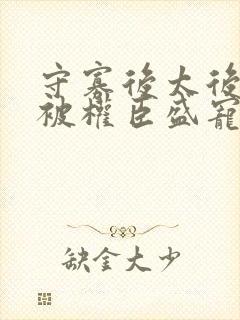 守寡後太後
被權臣盛寵
缺金大少